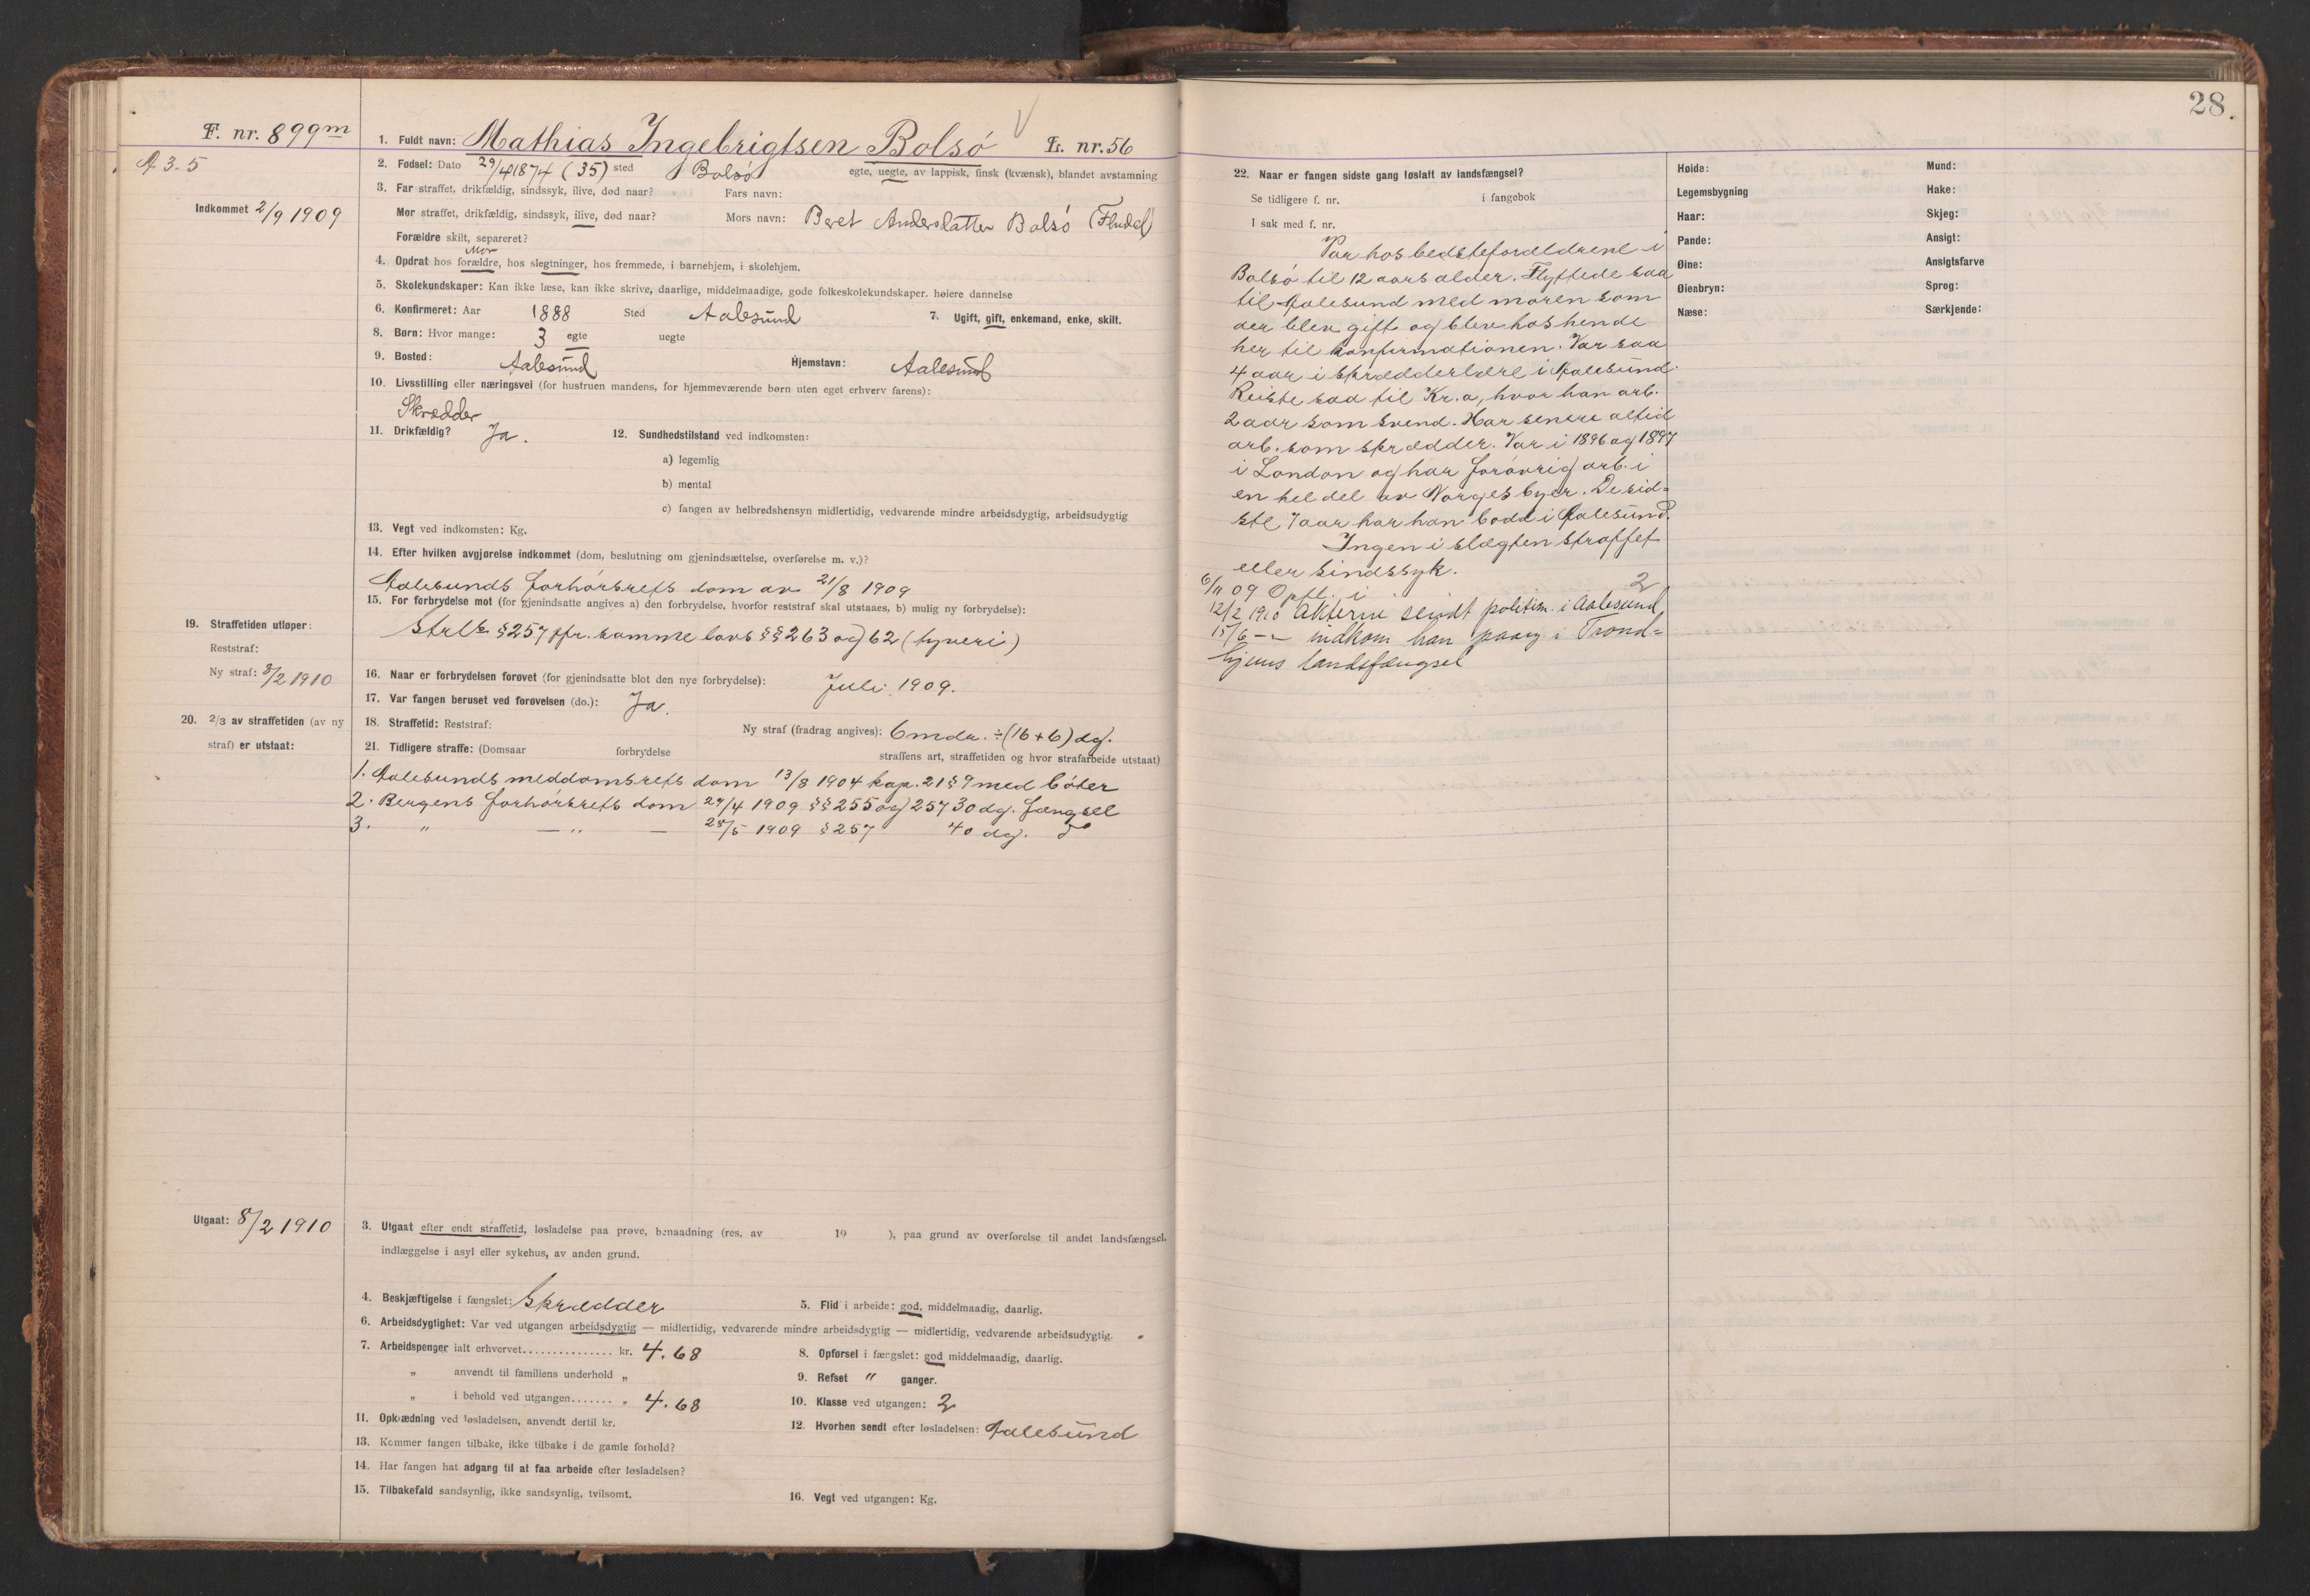 28.
F. nr. 899m
A 3. 5
Indkommet 2/9 1909
1. Fuldt navn: Mathias Ingebrigtsen Bolsö L. nr. 56
2. Fødsel: Dato 29/4 1874 (35) sted Bolsö egte, uegte, av lappisk, finsk (kvænsk), blandet avstamning
3. Far straffet, drikfældig, sindssyk, ilive, død naar? Fars navn:
Mor straffet, drikfældig, sindssyk, ilive, død naar? Mors navn: Beret Andersdatter Bolsö
Forældre skilt, separeret?
Mor
4. Opdrat hos forældre, hos slegtninger, hos fremmede, i barnehjem, i skolehjem.
5. Skolekundskaper: Kan ikke læse, kan ikke skrive, daarlige, middelmaadige, gode folkeskolekundskaper. høiere dannelse
6. Konfirmeret: Aar 1888 Sted Aalesund 7. Ugift, gift, enkemand, enke, skilt.
8. Børn: Hvor mange: 3 egte uegte
9. Bosted: Aalesund Hjemstavn: Aalesund
10. Livsstilling eller næringsvei (for hustruen mandens, for hjemmeværende børn uten eget erhverv farens):
Skrædder
11. Drikfældig? Ja. 12. Sundhedstilstand ved indkomsten:
a) legemlig
b) mental
c) fangen av helbredshensyn midlertidig, vedvarende mindre arbeidsdygtig, arbeidsudygtig
13. Vegt ved indkomsten: Kg.
14. Efter hvilken avgjørelse indkommet (dom, beslutning om gjenindsættelse, overførelse m. v.)?
Aalesunds forhörsrets dom av 21/8 1909
15. For forbrydelse mot (for gjenindsatte angives a) den forbrydelse, hvorfor reststraf skal utstaaes, b) mulig ny forbrydelse):
Strl. § 257 jfr. samme lovs §§ 263 og 62 (tyveri)
19. Straffetiden utløper:
Reststraf:
Ny straf: 8/2 1910
16. Naar er forbrydelsen forøvet (for gjenindsatte blot den nye forbrydelse): Juli 1909.
17. Var fangen beruset ved forøvelsen (do.): Ja.
20. 2/3 av straffetiden (av ny
straf) er utstaat:
18. Straffetid: Reststraf: Ny straf (fradrag angives): 6 mdr. ÷ (16 + 6) dg.
21. Tidligere straffe: (Domsaar forbrydelse straffens art, straffetiden og hvor strafarbeide utstaat)
1. Aalesunds meddomsrets dom 13/8 1904 kap. 21 § 9 med böter
2. Bergens forhörsrets dom 29/4 1909 §§ 255 og 257 30 dg. fængsel
3. " — " — 28/5 1909 § 257 40 dg. do
Utgaat: 8/2 1910
3. Utgaat efter endt straffetid, løsladelse paa prøve, benaadning (res. av 19 ), paa grund av overførelse til andet landsfængsel.
indlæggelse i asyl eller sykehus, av anden grund.
4. Beskjæftigelse i fængslet: Skrædder 5. Flid i arbeide: god, middelmaadig, daarlig.
6. Arbeidsdygtighet: Var ved utgangen arbeidsdygtig — midlertidig, vedvarende mindre arbeidsdygtig — midlertidig, vedvarende arbeidsudygtig.
7. Arbeidspenger ialt erhvervet............... kr. 4.68 8. Opførsel i fængslet: god middelmaadig, daarlig.
" anvendt til familiens underhold " 9. Refset " ganger.
" i behold ved utgangen....... " 4.68 10. Klasse ved utgangen: 2
11. Opklædning ved løsladelsen, anvendt dertil kr. 12. Hvorhen sendt efter løsladelsen: Aalesund
13. Kommer fangen tilbake, ikke tilbake i de gamle forhold?
14. Har fangen hat adgang til at faa arbeide efter løsladelsen?
15. Tilbakefald sandsynlig, ikke sandsynlig, tvilsomt. 16. Vegt ved utgangen: Kg.
22. Naar er fangen sidste gang løslatt av landsfængsel?
Se tidligere f. nr. i fangebok
I sak med f. nr.
Var hos bedsteforældrene i
Bolsö til 12 aars alder. Flyttede saa
til Aalesund med moren som
der blev gift og blev hos hende
her til konfirmationen. Var saa
4 aar i skrædderlære i Aalesund.
Reiste saa til Kr.a, hvor han arb.
2 aar som svend. Har senere altid
arb. som skrædder. Var i 1896 og 1897
i London og har forövrig arb. i
en hel del av Norges byer. De sid=
ste 7 aar har han bodd i Aalesund.
Ingen i slægten straffet
eller sindssyk.
6/11 09 Opfl. i 2
12/2 1910 Akterne sendt politim. i Aalesund
15/6 — indkom han paany i Trond=
hjems landsfængsel
Høide:
Legemsbygning
Haar:
Pande:
Øine:
Øienbryn:
Næse:
Mund:
Hake:
Skjeg:
Ansigt:
Ansigtsfarve
Sprog:
Særkjende: